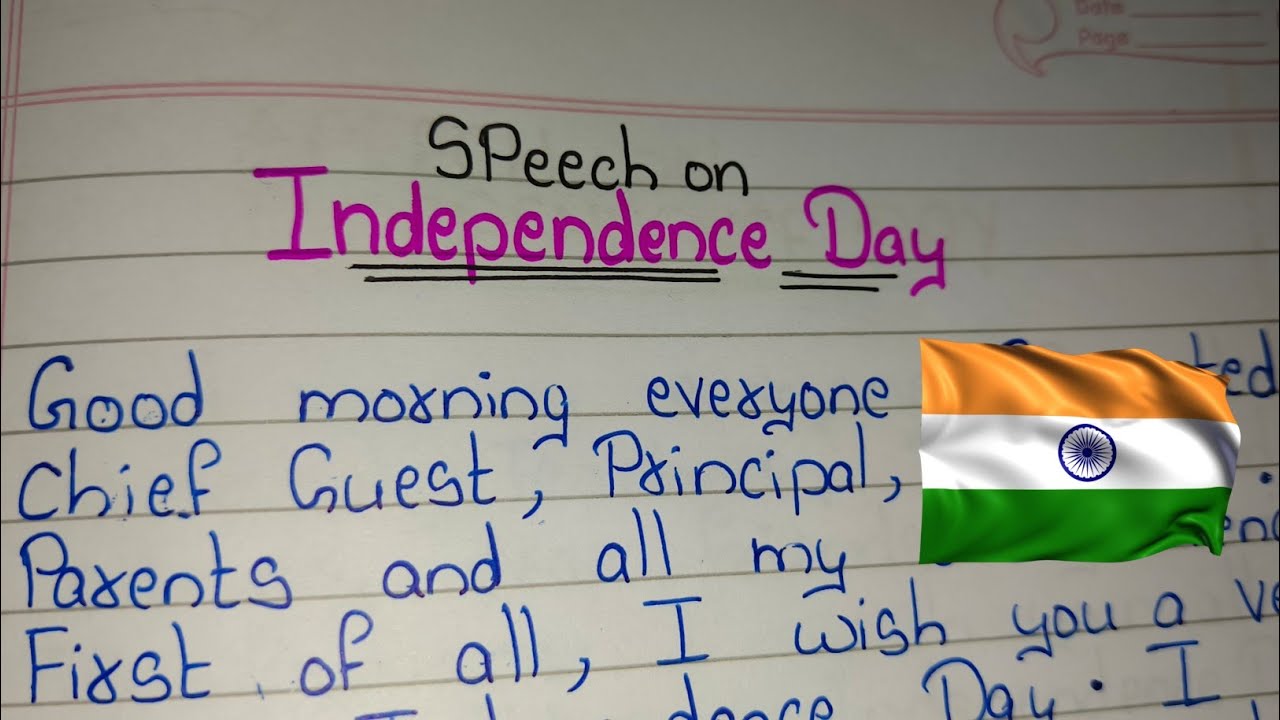 Date
Page
SPeech on
Independence Day
Good morning everyone
Chief Guest, Principal,
Parents and all my
First of all, I wish you a
Day. I